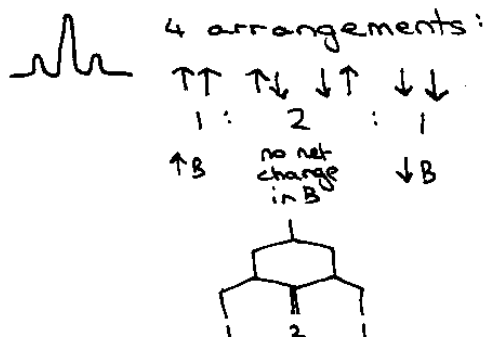 4 arrangements:
↑↑ ↑↓ ↓↑ ↓↓
1 : 2 : 1
↑B no net change in B ↓B
1 2 1